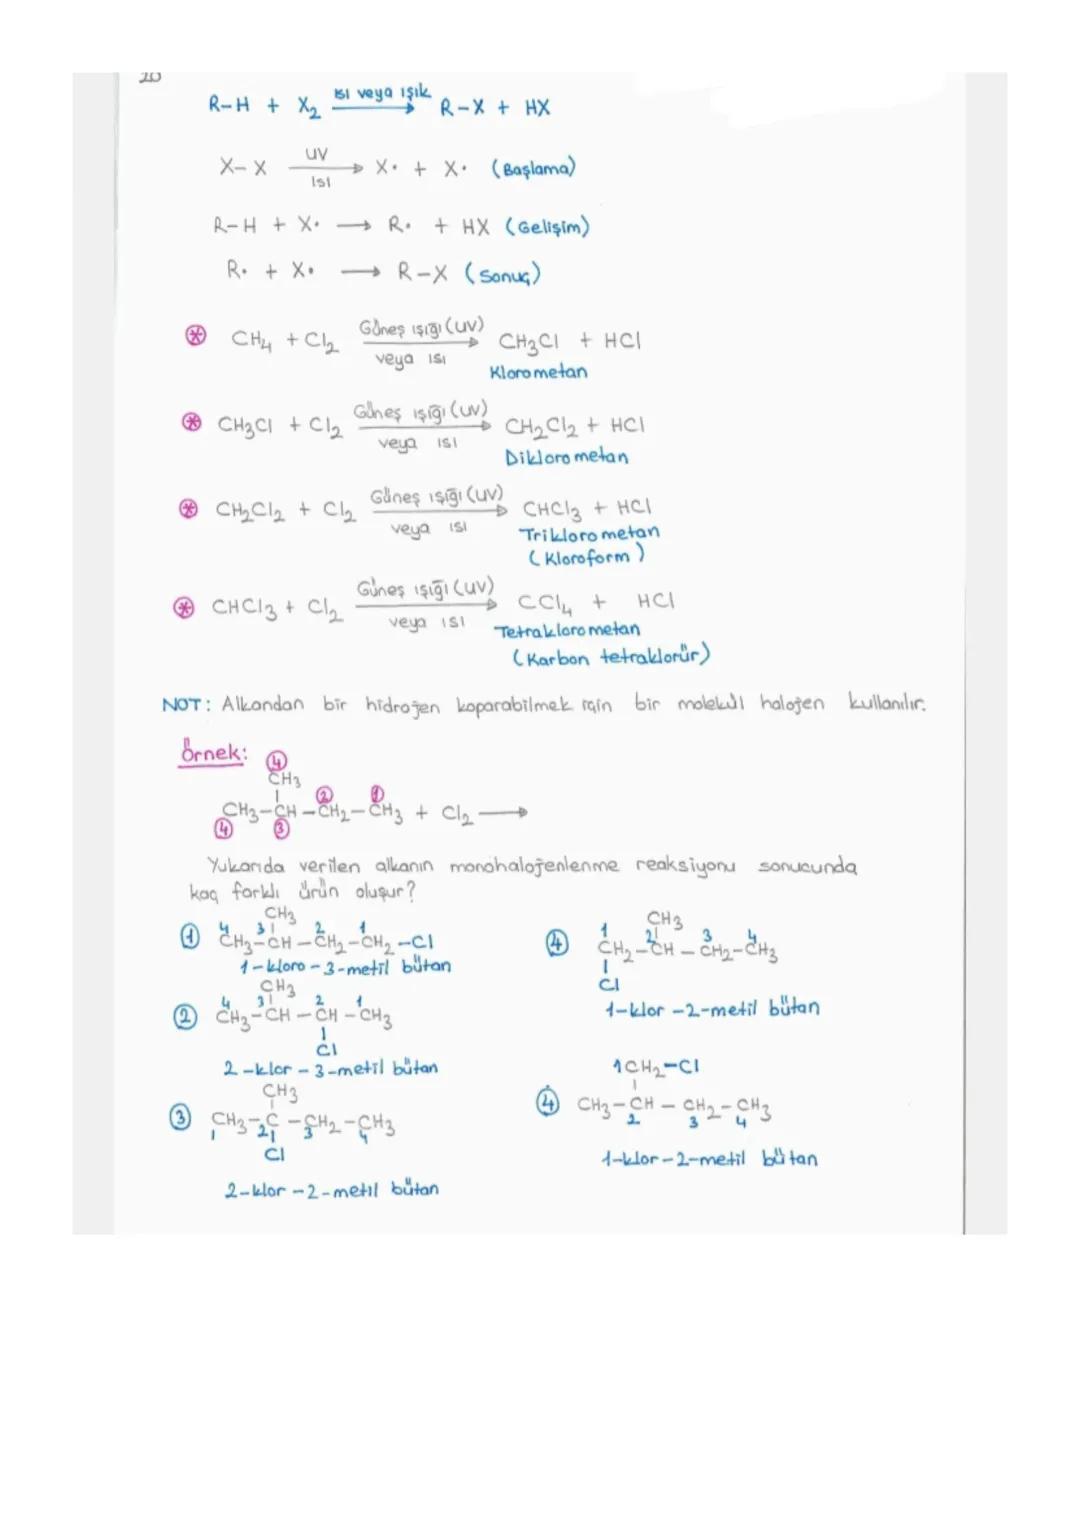 20
R-H + X₂ ısı veya ışık → R-X + HX
X-X UV ısı → X• + X• (Başlama)
R-H + X• → R• + HX (Gelişim)
R• + X• → R-X (Sonuç)
CH₄ + Cl₂ Güneş ışığı (UV) veya ısı → CH₃Cl + HCl
Klorometan
CH₃Cl + Cl₂ Güneş ışığı (UV) veya ısı → CH₂Cl₂ + HCl
Diklorometan
CH₂Cl₂ + Cl₂ Güneş ışığı (UV) veya ısı → CHCl₃ + HCl
Triklorometan
(Kloroform)
CHCl₃ + Cl₂ Güneş ışığı (UV) veya ısı → CCl₄ + HCl
Tetraklorometan
(Karbon tetraklorür)
NOT: Alkandan bir hidrojen koparabilmek için bir molekül halojen kullanılır.
Örnek:
④
CH₃
② ①
CH₃-CH-CH₂-CH₃ + Cl₂ →
④ ③
Yukarıda verilen alkanın monohalojenlenme reaksiyonu sonucunda
kaç farklı ürün oluşur?
CH₃
4 3 2 1
① CH₃-CH-CH₂-CH₂-Cl
1-kloro-3-metil bütan
CH₃
4 3 2 1
② CH₃-CH-CH-CH₃
Cl
2-klor-3-metil bütan
CH₃
③ CH₃-C-CH₂-CH₃
1 2 3 4
Cl
2-klor-2-metil bütan
CH₃
1 2 3 4
④ CH₂-CH-CH₂-CH₃
Cl
1-klor-2-metil bütan
1CH₂-Cl
④ CH₃-CH-CH₂-CH₃
2 3 4
1-klor-2-metil bütan